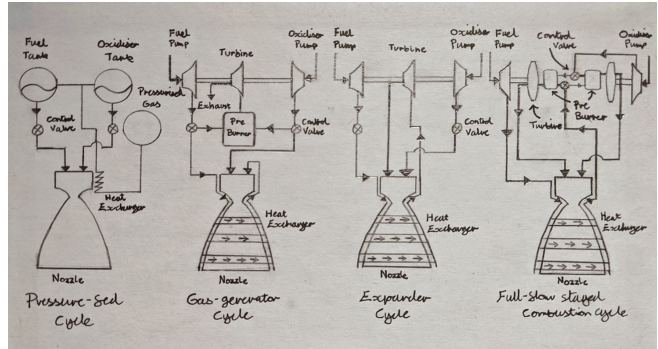 Fuel
Tank
Oxidiser
Tank
Pressurised
Gas
Control
Valve
Heat
Exchanger
Nozzle
Pressure-fed
Cycle
Fuel
Pump
Turbine
Oxidiser
Pump
Exhaust
Pre
Burner
Control
Valve
Heat
Exchanger
Nozzle
Gas-generator
Cycle
Fuel
Pump
Turbine
Oxidiser
Pump
Control
Valve
Heat
Exchanger
Nozzle
Expander
Cycle
Fuel
Pump
Control
Valve
Oxidiser
Pump
Turbine
Pre
Burner
Heat
Exchanger
Nozzle
Full-flow staged
Combustion cycle